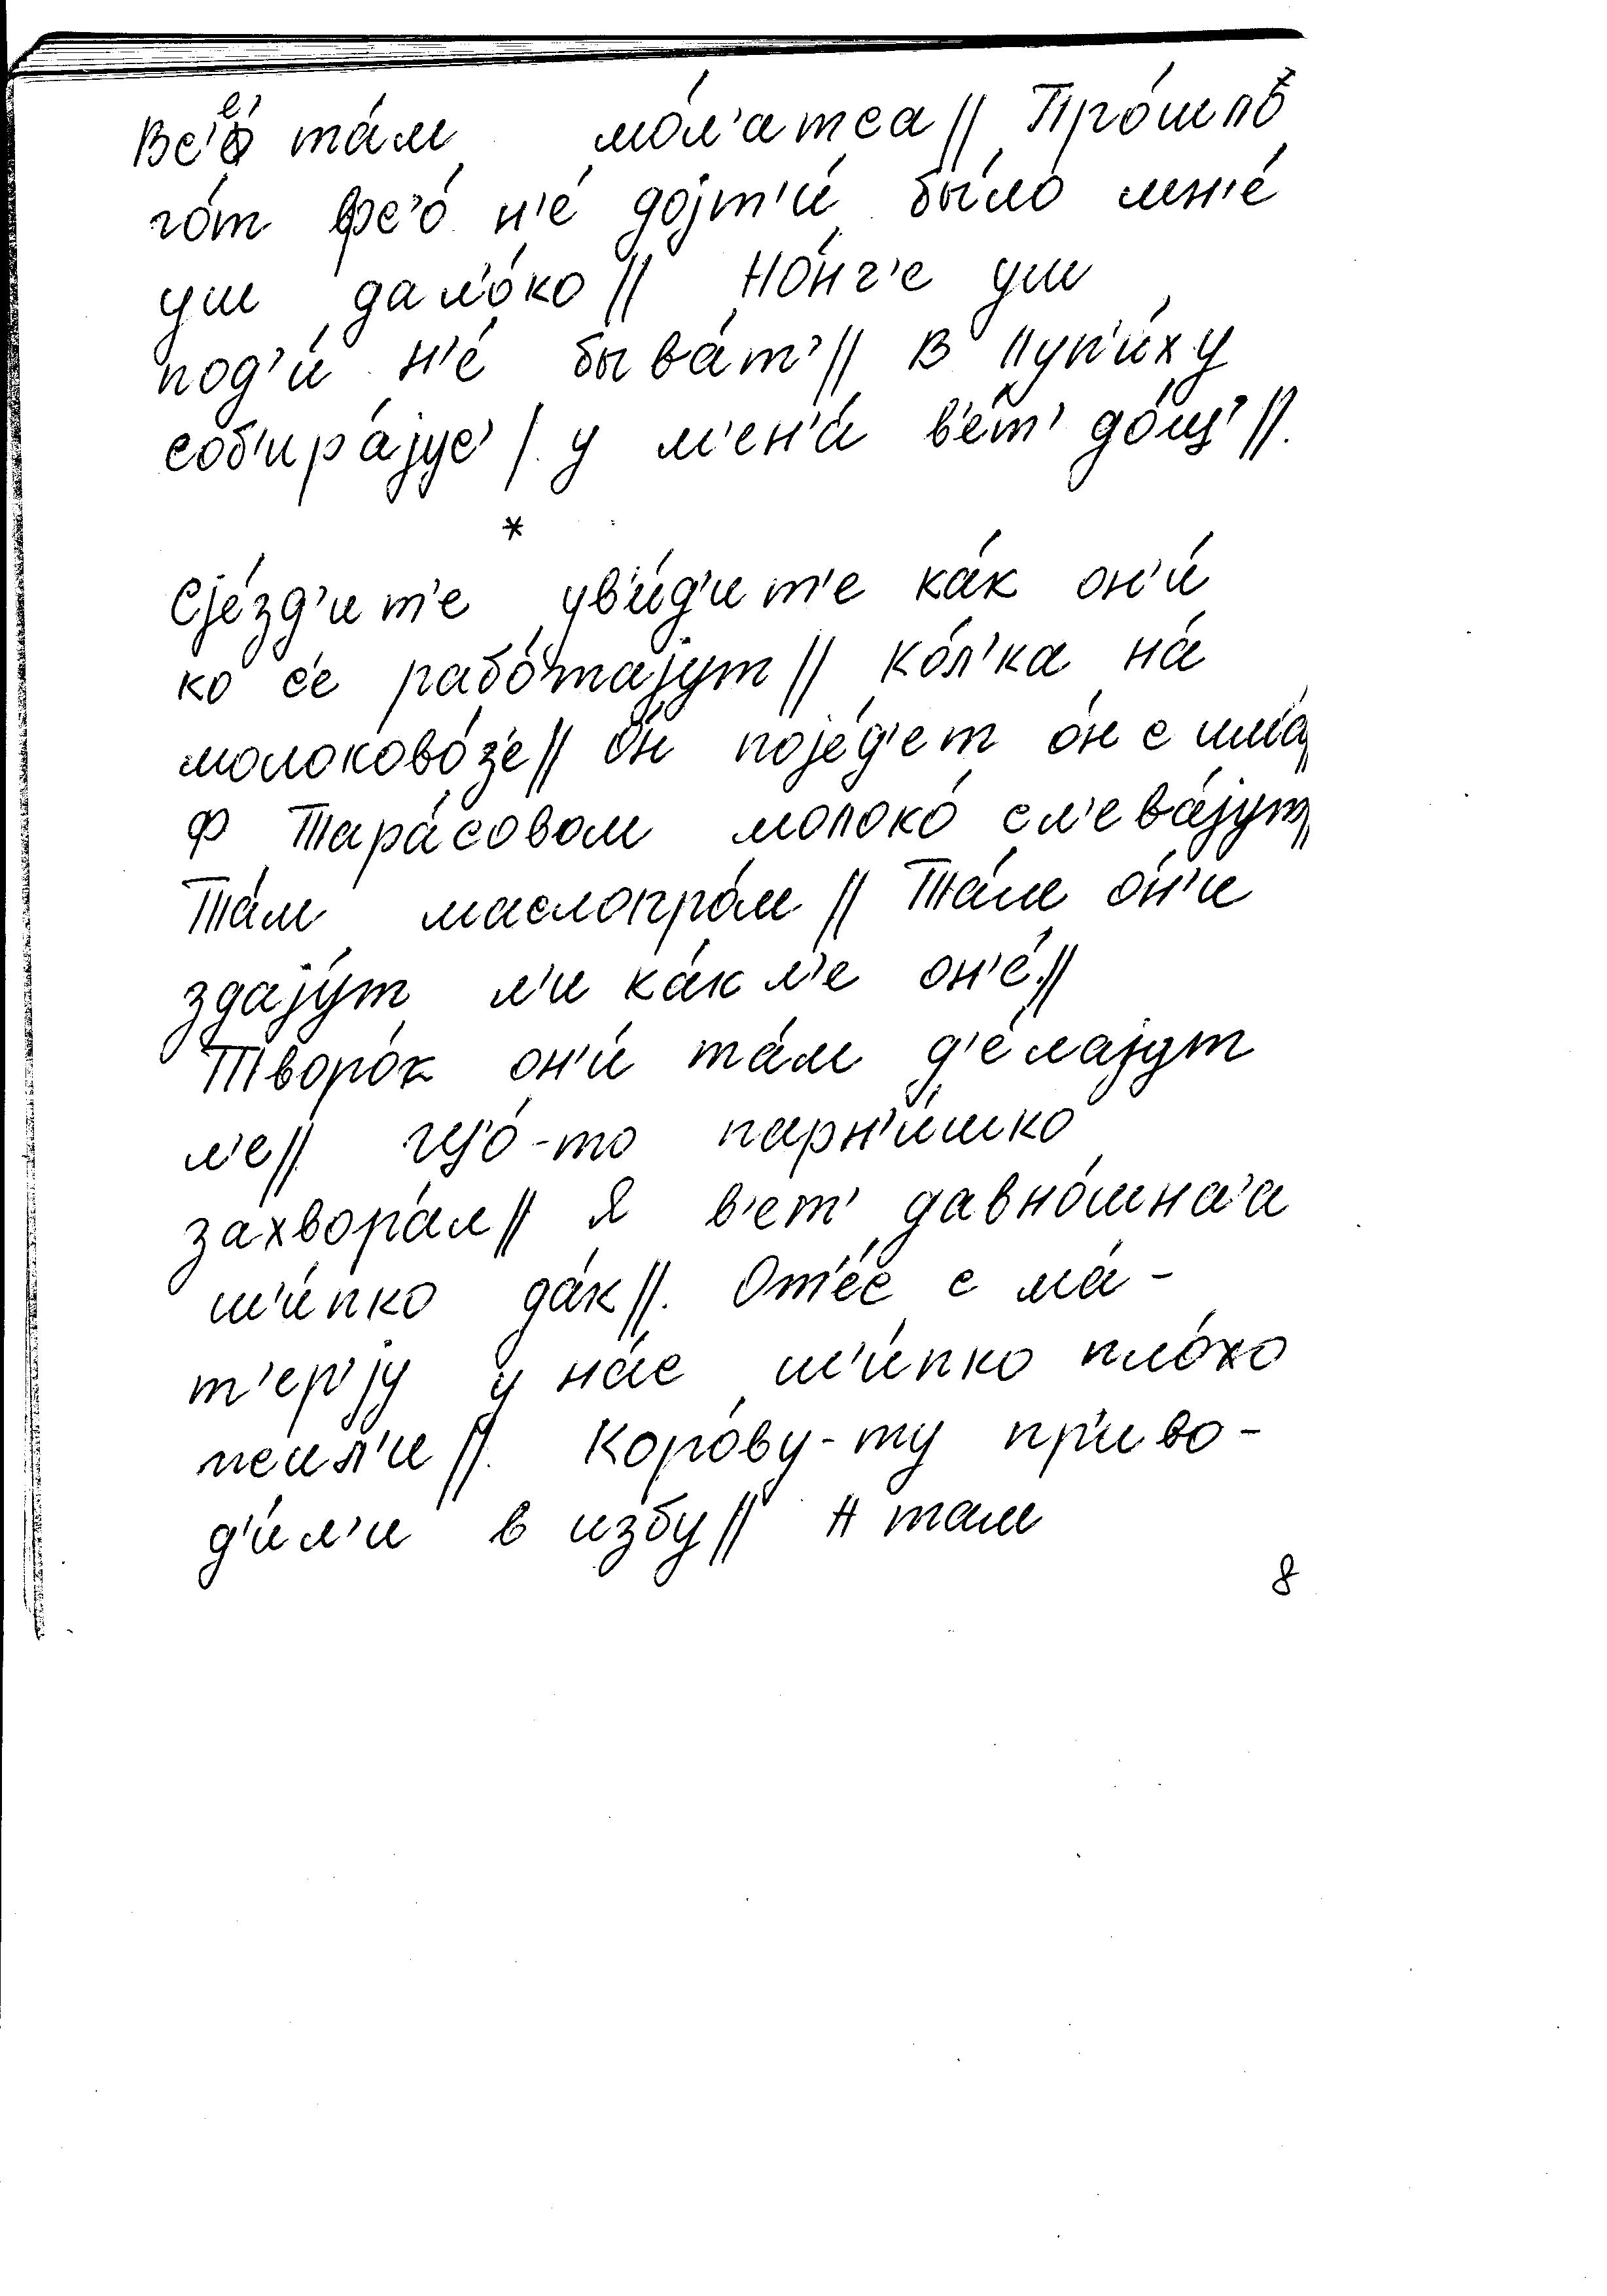 Вс'е́ та́м мо́л'атса // Про́шло
го́т фс'о́ н'е́ доjт'и́ бы́ло мн'е́
уш дал'о́ко // Но́нг'е уш
под'и́ н'е́ быва́т' // В Луп'и́ху
соб'ира́jус' / у м'ен'и́ в'е́т' до́щ' //.
*
Сjе́зд'ит'е ув'и́д'ит'е ка́к он'и́
ко с'е рабо́таjут // Ко́л'ка на́
молоково́з'е // О́н поjе́д'ет о́н с има́ //
Ф Тара́совом молоко́ сл'ева́jут //
Та́м маслопро́м // Та́м о́н'и
здаjу́т л'и ка́к л'е он'е́ //
Творо́к он'и́ та́м д'е́лаjут
л'е // Цц'о́-то парн'и́шко
захвора́л // Я в'ет' давно́шна'а
ш'и́пко да́к //. От'е́с с ма́-
т'ер'jу у на́с ш'и́пко пло́хо
жил'и //. Коро́ву-ту пр'иво-
д'и́л'и в избу // А там
8